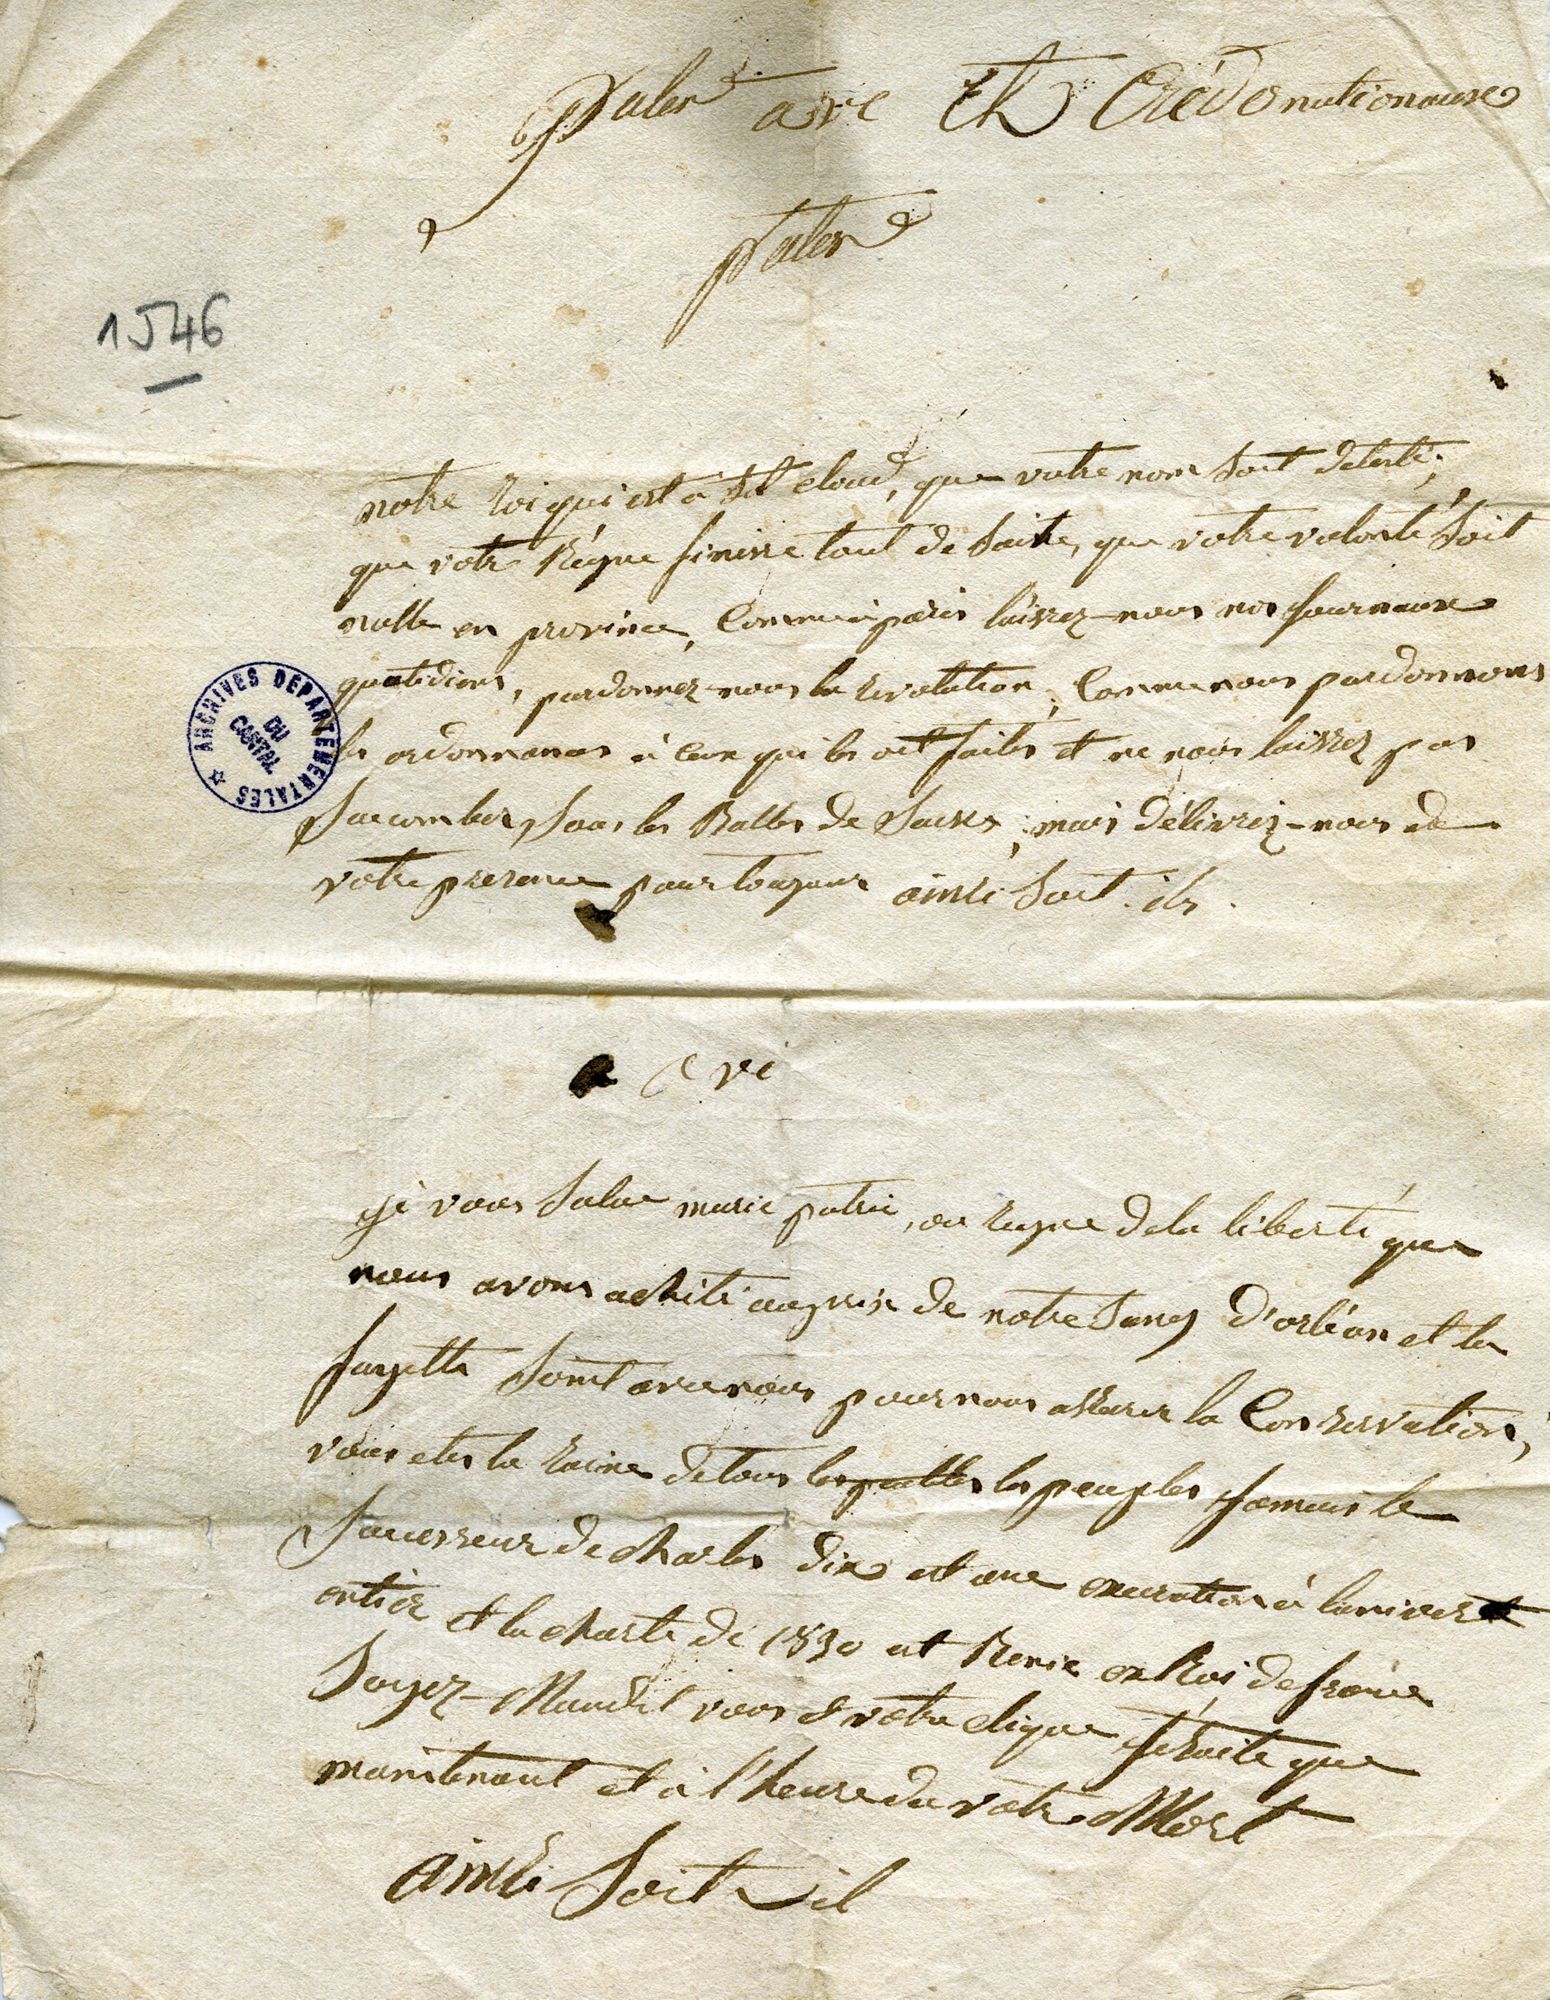 Pater ave Et Crédo nationaux
Pater
1 J 46
notre Roi qui est à St Cloud, que votre nom soit detesté,
que votre Régne finisse tout de suite, que votre volonté soit
nulle en province, Comme à paris laissez-nous nos journaux
quotidiens, pardonnez-nous la revolution, Comme nous pardonnons
les ordonnances à ceux qui les ont faites et ne nous laissez pas
succomber sous les Balles de suisses, mais délivrez-nous de
votre presence pour toujour ainsi soit-ils.
ARCHIVES DEPARTEMENTALES
DU
CANTAL
Ave
je vous salue marie patrie, ou regne de la liberté que
nous avons acheté au prix de notre sang d'orléan et la
fayette soint avec nous pour nous assurer la Conservation,
vous etes la raine de tous les peuples les peuples jamais le
successeur de charles dix est une execration à l'univert
entier et la charte de 1830 est Renie en Roi de france
soyez-Maudit vous et votre clique jesuite que
maintenant et à l'heure du votre Mort
ainsi soit-il